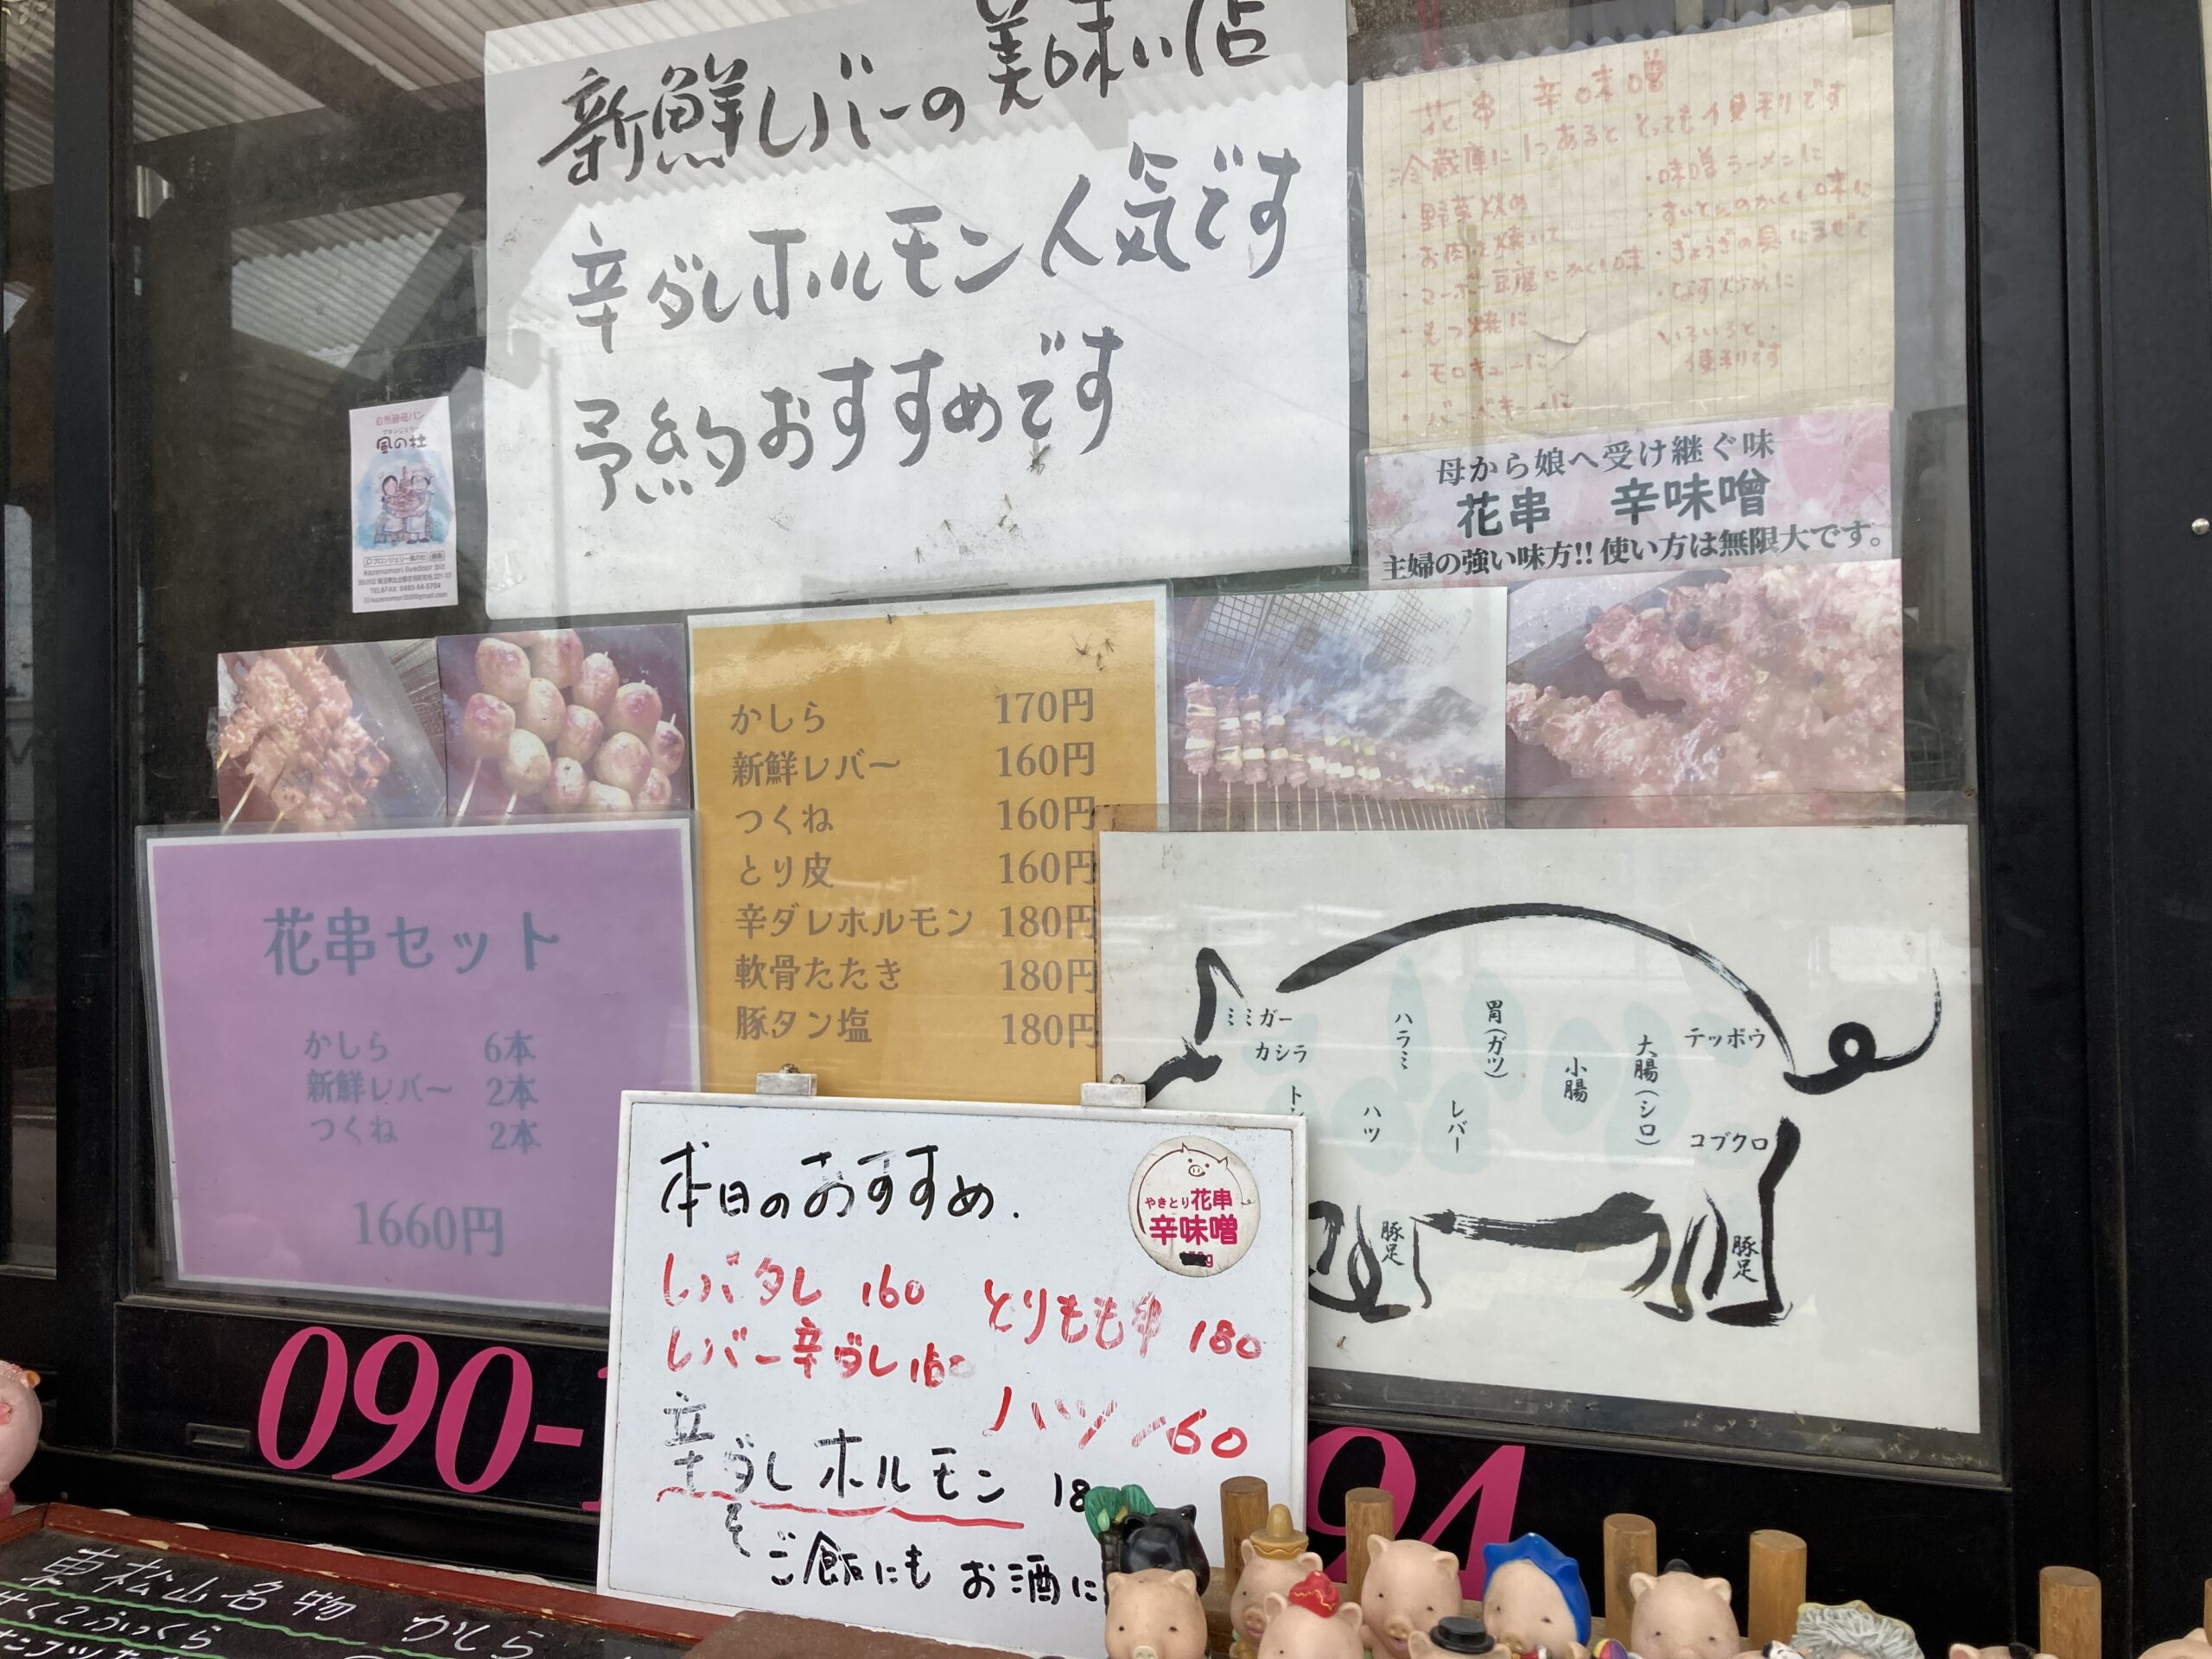 新鮮レバーの美味い店
辛ダレホルモン人気です
予約おすすめです
花串 辛味噌
冷蔵庫に1つあるととっても便利です
・野菜炒め
・お肉を焼いて
・マーボー豆腐にかくし味
・もつ焼に
・モロキューに
・バーベキューに
・味噌ラーメンに
・すいとんのかくし味に
・ぎょうざの具にまぜて
・なす炒めに
いろいろと
便利です
母から娘へ受け継ぐ味
花串 辛味噌
主婦の強い味方!!使い方は無限大です。
自然酵母パン
ブロンジェリー
風の杜
かしら 170円
新鮮レバー 160円
つくね 160円
とり皮 160円
辛ダレホルモン 180円
軟骨たたき 180円
豚タン塩 180円
花串セット
かしら 6本
新鮮レバー 2本
つくね 2本
1660円
ミミガー
カシラ
ハラミ
ハツ
胃(ガツ)
レバー
小腸
大腸(シロ)
テッポウ
コブクロ
豚足
豚足
本日のおすすめ.
やきとり花串
辛味噌
レバタレ 160
とりもも串 180
レバー辛ダレ160
ハツ 160
辛ダレホルモン 18
ご飯にも お酒に
090-
94
東松山名物 かしら